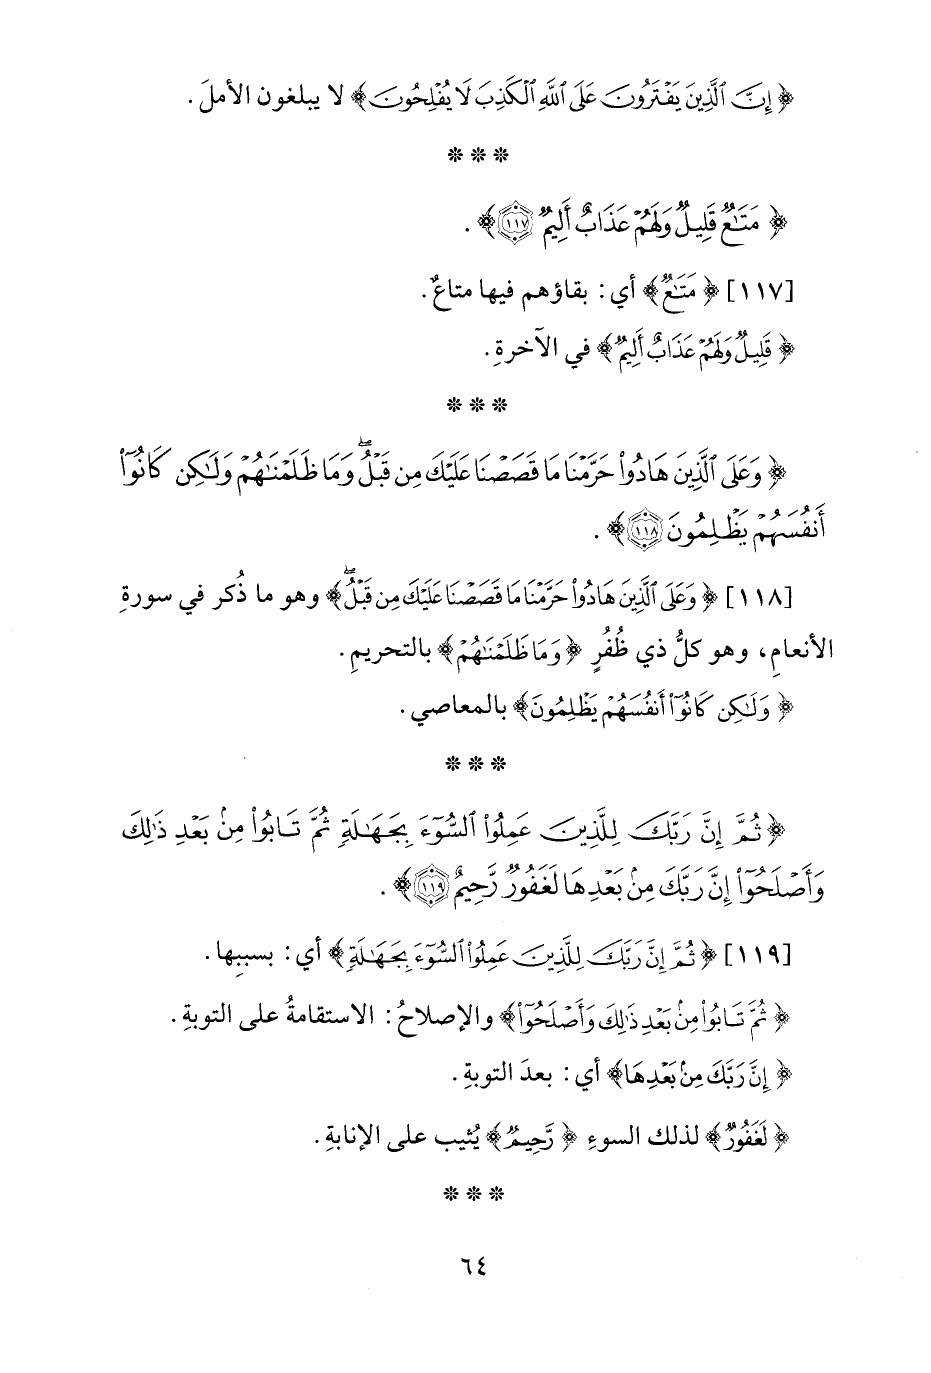 ﴿إِنَّ ٱلَّذِينَ يَفْتَرُونَ عَلَى ٱللَّهِ ٱلْكَذِبَ لَا يُفْلِحُونَ﴾ لا يبلغون الأملَ.
* * *
﴿مَتَٰعٌ قَلِيلٌ وَلَهُمْ عَذَابٌ أَلِيمٌ ١١٧﴾.
[١١٧] ﴿مَتَٰعٌ﴾ أي: بقاؤهم فيها متاعٌ.
﴿قَلِيلٌ وَلَهُمْ عَذَابٌ أَلِيمٌ﴾ في الآخرةِ.
* * *
﴿وَعَلَى ٱلَّذِينَ هَادُوا۟ حَرَّمْنَا مَا قَصَصْنَا عَلَيْكَ مِن قَبْلُ ۖ وَمَا ظَلَمْنَٰهُمْ وَلَٰكِن كَانُوٓا۟
أَنفُسَهُمْ يَظْلِمُونَ ١١٨﴾.
[١١٨] ﴿وَعَلَى ٱلَّذِينَ هَادُوا۟ حَرَّمْنَا مَا قَصَصْنَا عَلَيْكَ مِن قَبْلُ ۖ﴾ وهو ما ذُكر في سورةِ
الأنعامِ، وهو كلُّ ذي ظُفُرٍ ﴿وَمَا ظَلَمْنَٰهُمْ﴾ بالتحريمِ.
﴿وَلَٰكِن كَانُوٓا۟ أَنفُسَهُمْ يَظْلِمُونَ﴾ بالمعاصي.
* * *
﴿ثُمَّ إِنَّ رَبَّكَ لِلَّذِينَ عَمِلُوا۟ ٱلسُّوٓءَ بِجَهَٰلَةٍ ثُمَّ تَابُوا۟ مِنۢ بَعْدِ ذَٰلِكَ
وَأَصْلَحُوٓا۟ إِنَّ رَبَّكَ مِنۢ بَعْدِهَا لَغَفُورٌ رَّحِيمٌ ١١٩﴾.
[١١٩] ﴿ثُمَّ إِنَّ رَبَّكَ لِلَّذِينَ عَمِلُوا۟ ٱلسُّوٓءَ بِجَهَٰلَةٍ﴾ أي: بسببِها.
﴿ثُمَّ تَابُوا۟ مِنۢ بَعْدِ ذَٰلِكَ وَأَصْلَحُوٓا۟﴾ والإصلاحُ: الاستقامةُ على التوبةِ.
﴿إِنَّ رَبَّكَ مِنۢ بَعْدِهَا﴾ أي: بعدَ التوبةِ.
﴿لَغَفُورٌ﴾ لذلك السوءِ ﴿رَّحِيمٌ﴾ يُثيب على الإنابةِ.
* * *
٦٤